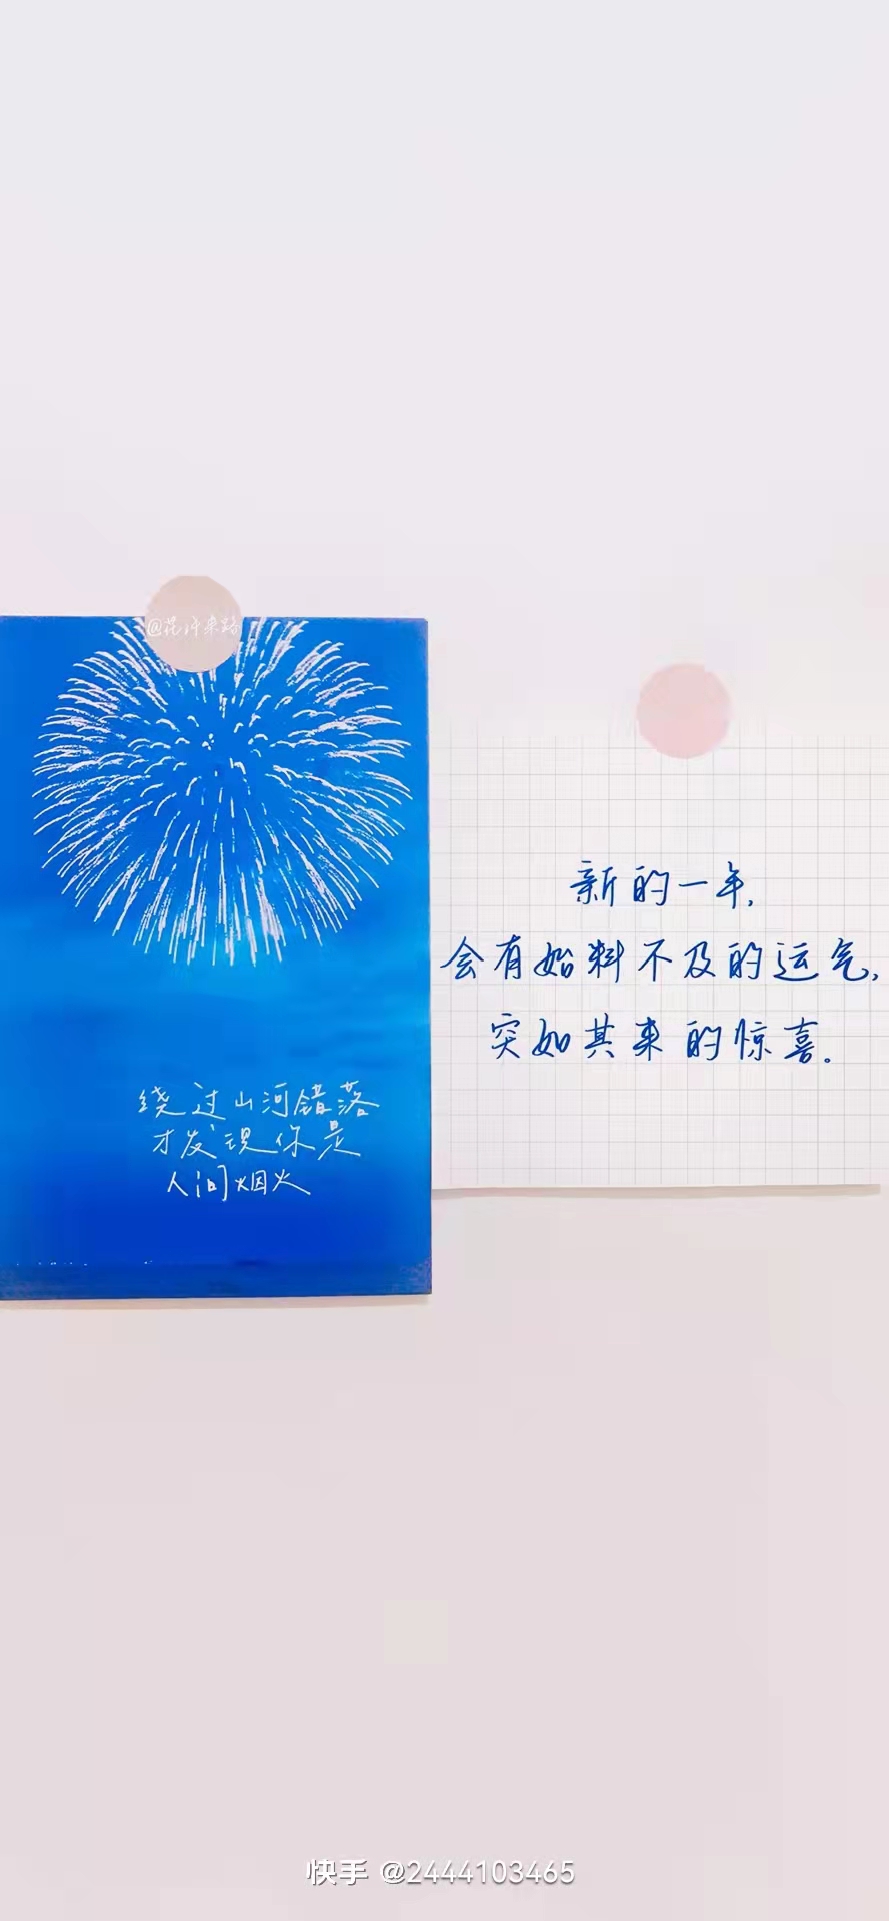 @花许来路
绕过山河错落
才发现你是
人间烟火
新的一年,
会有始料不及的运气,
突如其来的惊喜。
快手 @2444103465